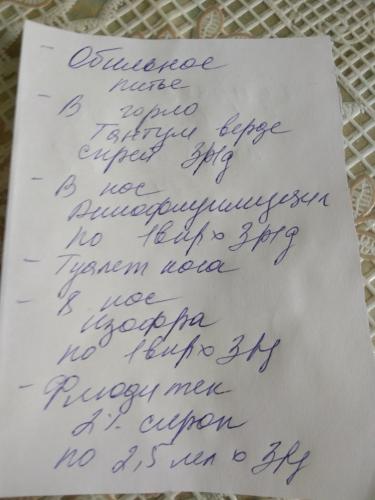 - Обильное
питье
- В горло
Тантум верде
спрей 3р/д
- В нос
по 1 впр х 3р/д
- Туалет носа
- В нос
изофра
по 1 впр х 3р/д
- Флюдитек
2% сироп
по 2,5 мл х 3р/д